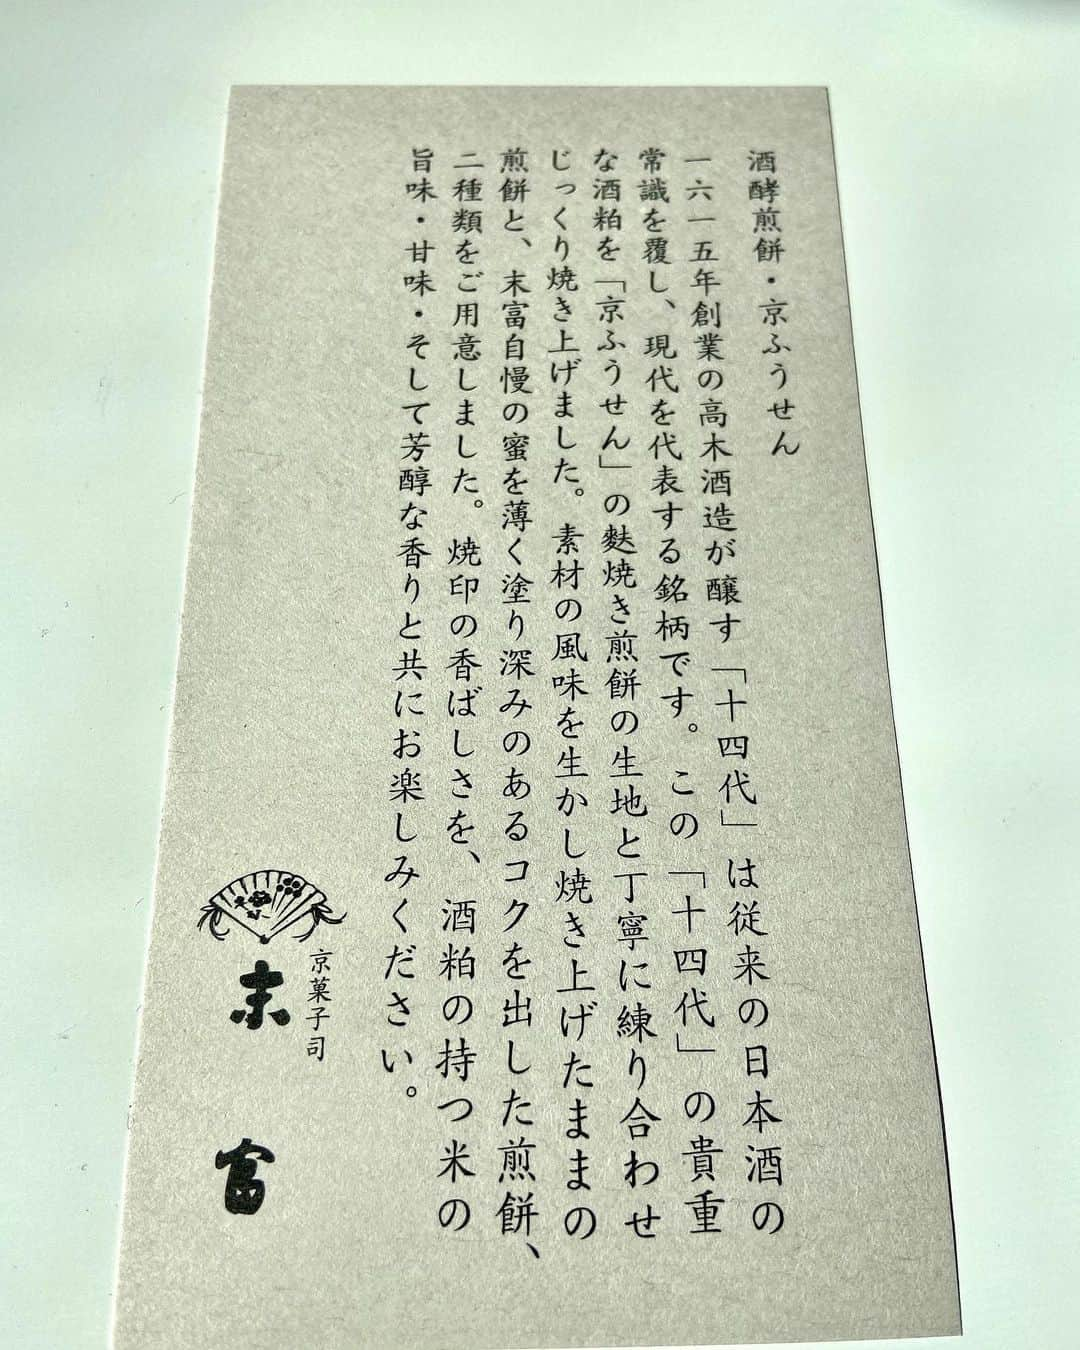 酒酵煎餅・京ふうせん
一六一五年創業の高木酒造が醸す「十四代」は従来の日本酒の
常識を覆し、現代を代表する銘柄です。この「十四代」の貴重
な酒粕を「京ふうせん」の麩焼き煎餅の生地と丁寧に練り合わせ
じっくり焼き上げました。素材の風味を生かし焼き上げたままの
煎餅と、末富自慢の蜜を薄く塗り深みのあるコクを出した煎餅、
二種類をご用意しました。焼印の香ばしさを、酒粕の持つ米の
旨味・甘味・そして芳醇な香りと共にお楽しみください。
京菓子司
末富